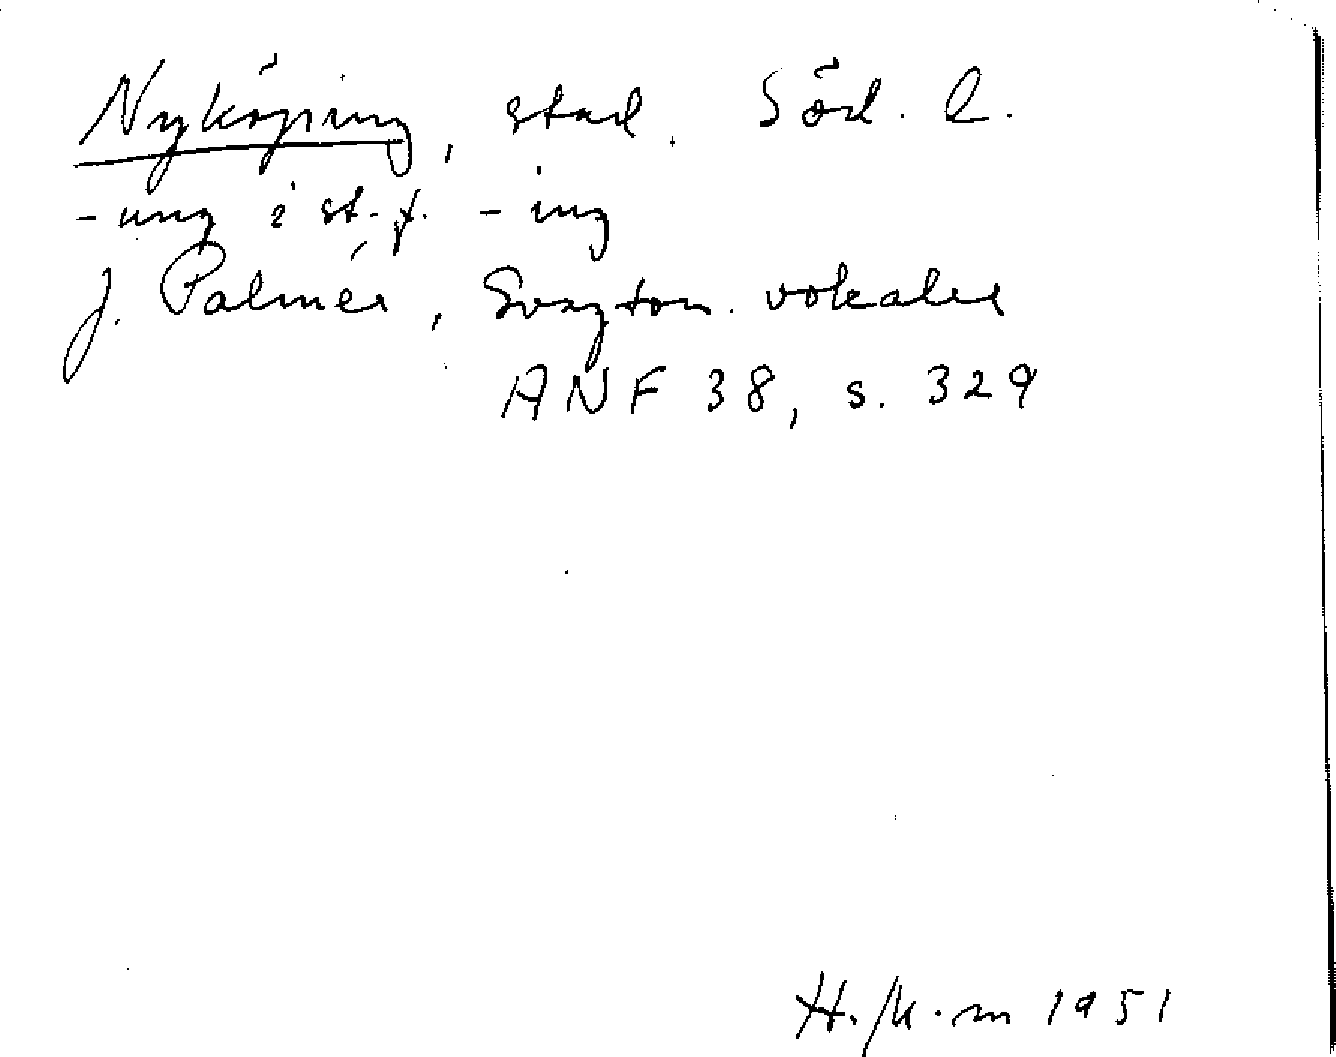 Nyköping, stad. Söd. l.
-ung i st. f. -ing
J. Palmér, Svagton. vokaler
ANF 38, s. 329
1951